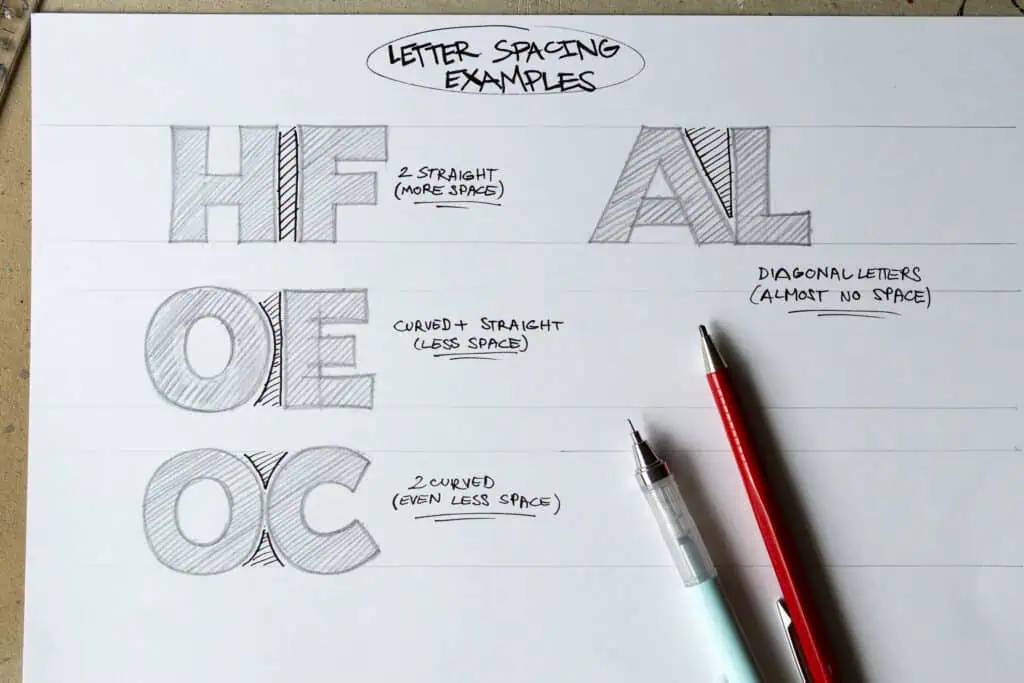 LETTER SPACING
EXAMPLES
HF
2 STRAIGHT
(MORE SPACE)
AL
DIAGONAL LETTERS
(ALMOST NO SPACE)
OE
CURVED + STRAIGHT
(LESS SPACE)
OC
2 CURVED
(EVEN LESS SPACE)